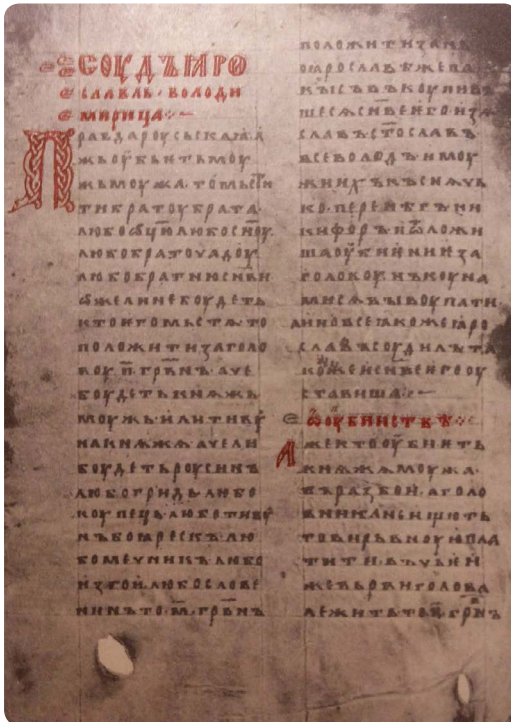 СОУДЪ ꙖРО
СЛАВЛЬ · ВОЛОДИ
МИРИЦА :~
Правда роусьскаꙗ · а
жь оубьить моу
жь моужа · то мьсти
ти братоу брата ·
любо ѡц҃ю любо сн҃оу
любо братоучадоу
любо братню сн҃ви
ѡже ли не боудеть
кто ѥго мьстѧ то
положити за голо
воу · п҃ · грв҃нъ · аче
боудеть кнѧжь
моужь · или тивоу
на кнѧжѧ · аче ли
боудеть роусинъ
любо гридь · любо
коупець · любо тивоу
нъ боꙗрескъ · лю
бо мечникъ · любо
изгои · любо слове
нинъ · то · м҃ · грв҃нъ
положити за нь ·
по ꙗрославѣ же па
кы съвъкоупивъ
шесѧ сн҃ве ѥго · изѧ
славъ · ст҃ославъ
всеволодъ · и моу
жи ихъ · къснѧчь
ко · перенѣгъ · ни
кифоръ · и ѿложи
ша оубиѥниѥ за
головоу · нъ коуна
ми сѧ выкоупати
а ино все ꙗкоже ꙗро
славъ соудилъ · та
коже и сн҃ве ѥго оу
ставиша :~
ѡ оубиствѣ :~
Аже кто оубиить
кнѧжа моужа ·
въ разбои · а голо
вника не ищють
то вирьвноую пла
тити · въ чьѥи
же вьрви голова
лежить · то п҃ · грв҃нъ